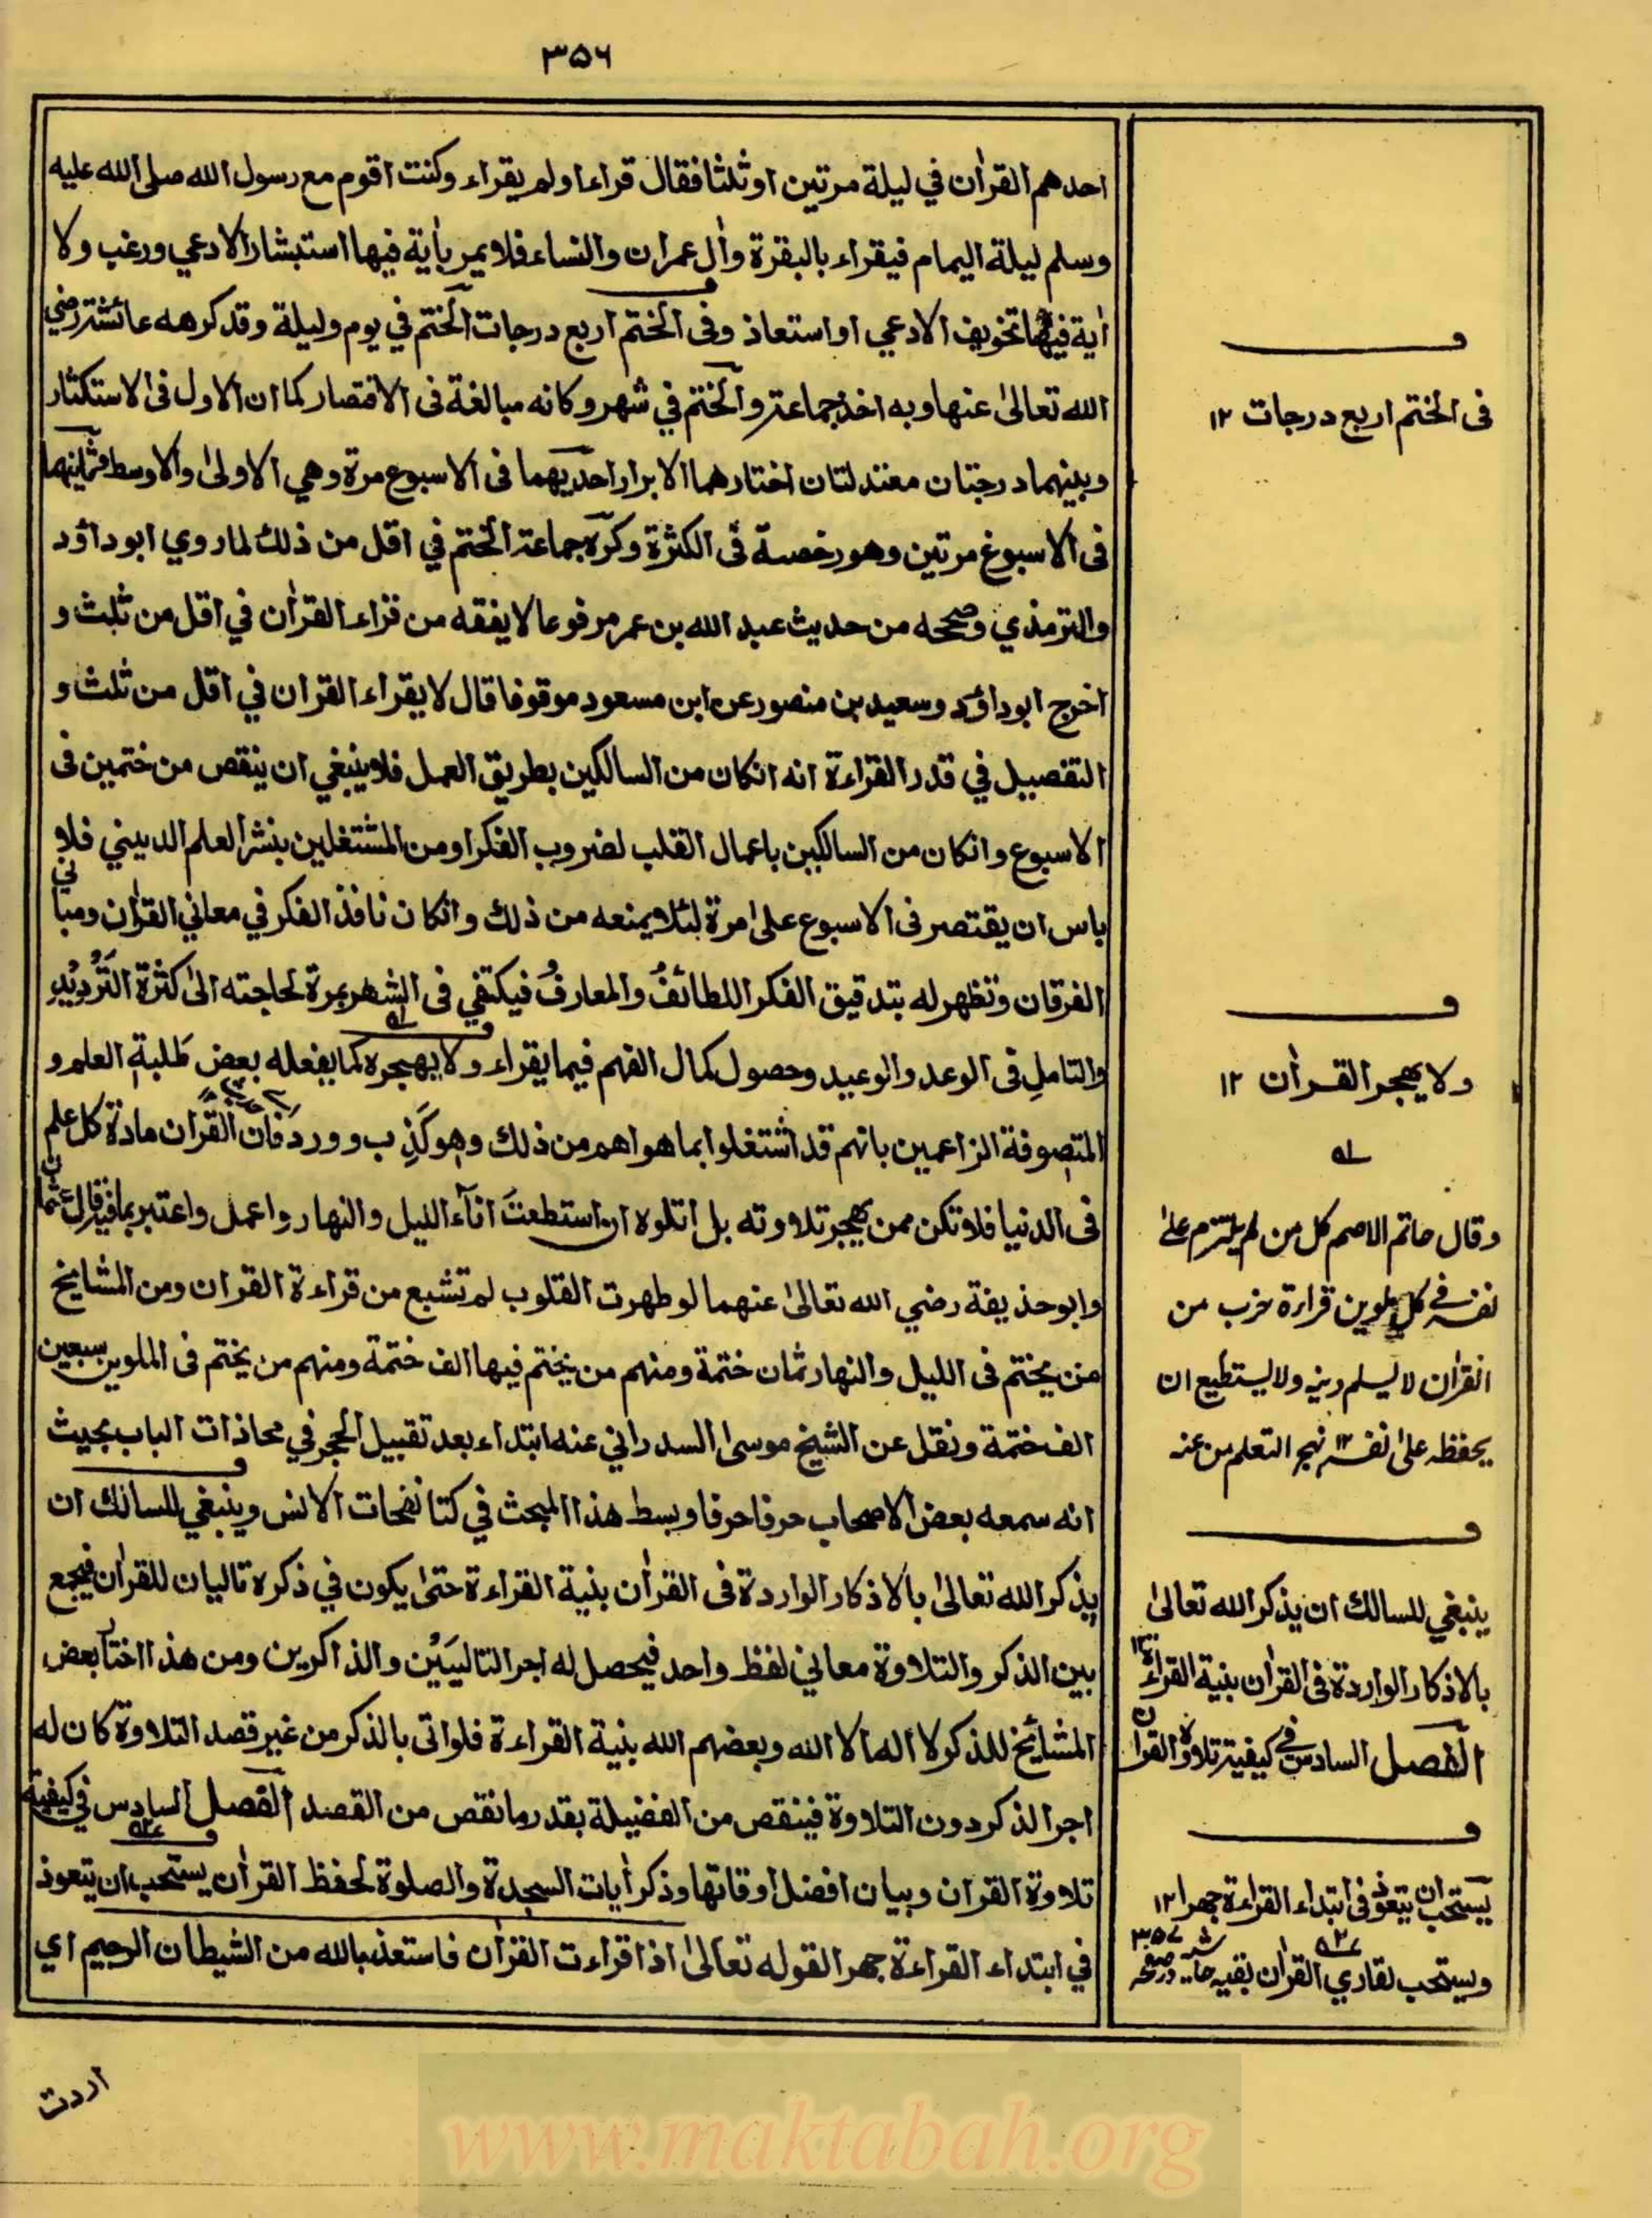 ٣٥٦
احدهم القراٰن في ليلة مرتين او ثلثا فقال قراءا ولم يقراء وكنت اقوم مع رسول الله صلى الله عليه
وسلم ليلة اليمام فيقراء بالبقرة واٰل عمران والنساء فلا يمر باٰية فيها استبشار الا دعي ورغب ولا
اٰية فيها تخويف الا دعي او استعاذ وفى الختم اربع درجات الختم في يوم وليلة وقد كرهه عائشة رضي
الله تعالىٰ عنها وبه اخذ جماعة والختم في شهر وكانه مبالغة فى الاقتصار كما ان الاول فى الاستكثار
وبينهما درجتان معتدلتان اختارهما الابرار احديهما فى الاسبوع مرة وهي الاولىٰ والاوسط فثانيهما
فى الاسبوع مرتين وهو رخصة فى الكثرة وكره جماعة الختم في اقل من ذلك لما روي ابو داؤد
والترمذي وصححه من حديث عبد الله بن عمر مرفوعا لا يفقه من قراء القراٰن في اقل من ثلث و
اخرج ابو داؤد وسعيد بن منصور عن ابن مسعود موقوفا قال لا يقراء القران في اقل من ثلث و
التفصيل في قدر القراءة انه انكان من السالكين بطريق العمل فلا ينبغي ان ينقص من ختمين فى
الاسبوع وانكان من السالكين باعمال القلب لضروب الفكر او من المشتغلين بنشر العلم الديني فلا
باس ان يقتصر فى الاسبوع علىٰ مرة لئلا يمنعه من ذلك وانكان نافذ الفكر في معاني القراٰن ومباني
الفرقان وتظهر له بتدقيق الفكر اللطائفُ والمعارفُ فيكتفي فى الشهر بمرة لحاجته الىٰ كثرة التَّرْدِيْدِ
والتاملِ فى الوعد والوعيد وحصول كمال الفهم فيما يقراء ولا يهجره كما يفعله بعض طلبة العلم و
المتصوفة الزاعمين بانهم قد اشتغلوا بما هو اهم من ذلك وهو كَذِب وورد فان القران مادة كل علم
فى الدنيا فلا تكن ممن يهجر تلاوته بل اتلوه ان استطعتَ اناۤء الليل والنهار واعمل واعتبر بما فيه قال عثمان
وابو حذيفة رضي الله تعالىٰ عنهما لو طهرت القلوب لم تشبع من قراءة القران ومن المشايخ
من يختم فى الليل والنهار ثمان ختمة ومنهم من يختم فيها الف ختمة ومنهم من يختم فى الملوين سبعين
الف ختمة ونقل عن الشيخ موسىٰ السدراني عنه ابتداء بعد تقبيل الحجر في محاذات الباب بحيث
انه سمعه بعض الاصحاب حرفا حرفا وبسط هذا المبحث في كتا نفحات الانس وينبغي للسالك ان
يذكر الله تعالىٰ بالاذكار الواردة فى القراٰن بنية القراءة حتىٰ يكون في ذكره تاليان للقراٰن فيجمع
بين الذكر والتلاوة معاني لفظ واحد فيحصل له اجر التاليَيْن والذاكرين ومن هذا اختا بعض
المشائخ للذكر لا اله الا الله وبعضهم الله بنية القراءة فلو اتى بالذكر من غير قصد التلاوة كان له
اجر الذكر دون التلاوة فينقص من الفضيلة بقدر ما نقص من القصد الفصل السادس في كيفية
تلاوة القران وبيان افضل اوقاتها وذكر اٰيات السجدة والصلوة لحفظ القراٰن يستحب ان يتعوذ
في ابتداء القراءة جهرا لقوله تعالىٰ اذا قراءت القراٰن فاستعذ بالله من الشيطان الرجيم اي
اردت
فى الختم اربع درجات ١٢
ولا يهجر القراٰن ١٢
وقال حاتم الاصم كل من لم يلتزم علىٰ
نفسه في كل ملوين قراءة حزب من
القراٰن لا يسلم دينه ولا يستطيع ان
يحفظه علىٰ نفسه ١٢ نهج التعلم من عنه
ينبغي للسالك ان يذكر الله تعالىٰ
بالاذكار الواردة فى القراٰن بنية القراءة ١٢
الفصل السادس في كيفية تلاوة القران
يستحب ان يتعوذ فى ابتداء القراءة جهرا ١٢
ويستحب لقاري القراٰن بقيه حاشيه در صفحه ٣٥٧
www.maktabah.org